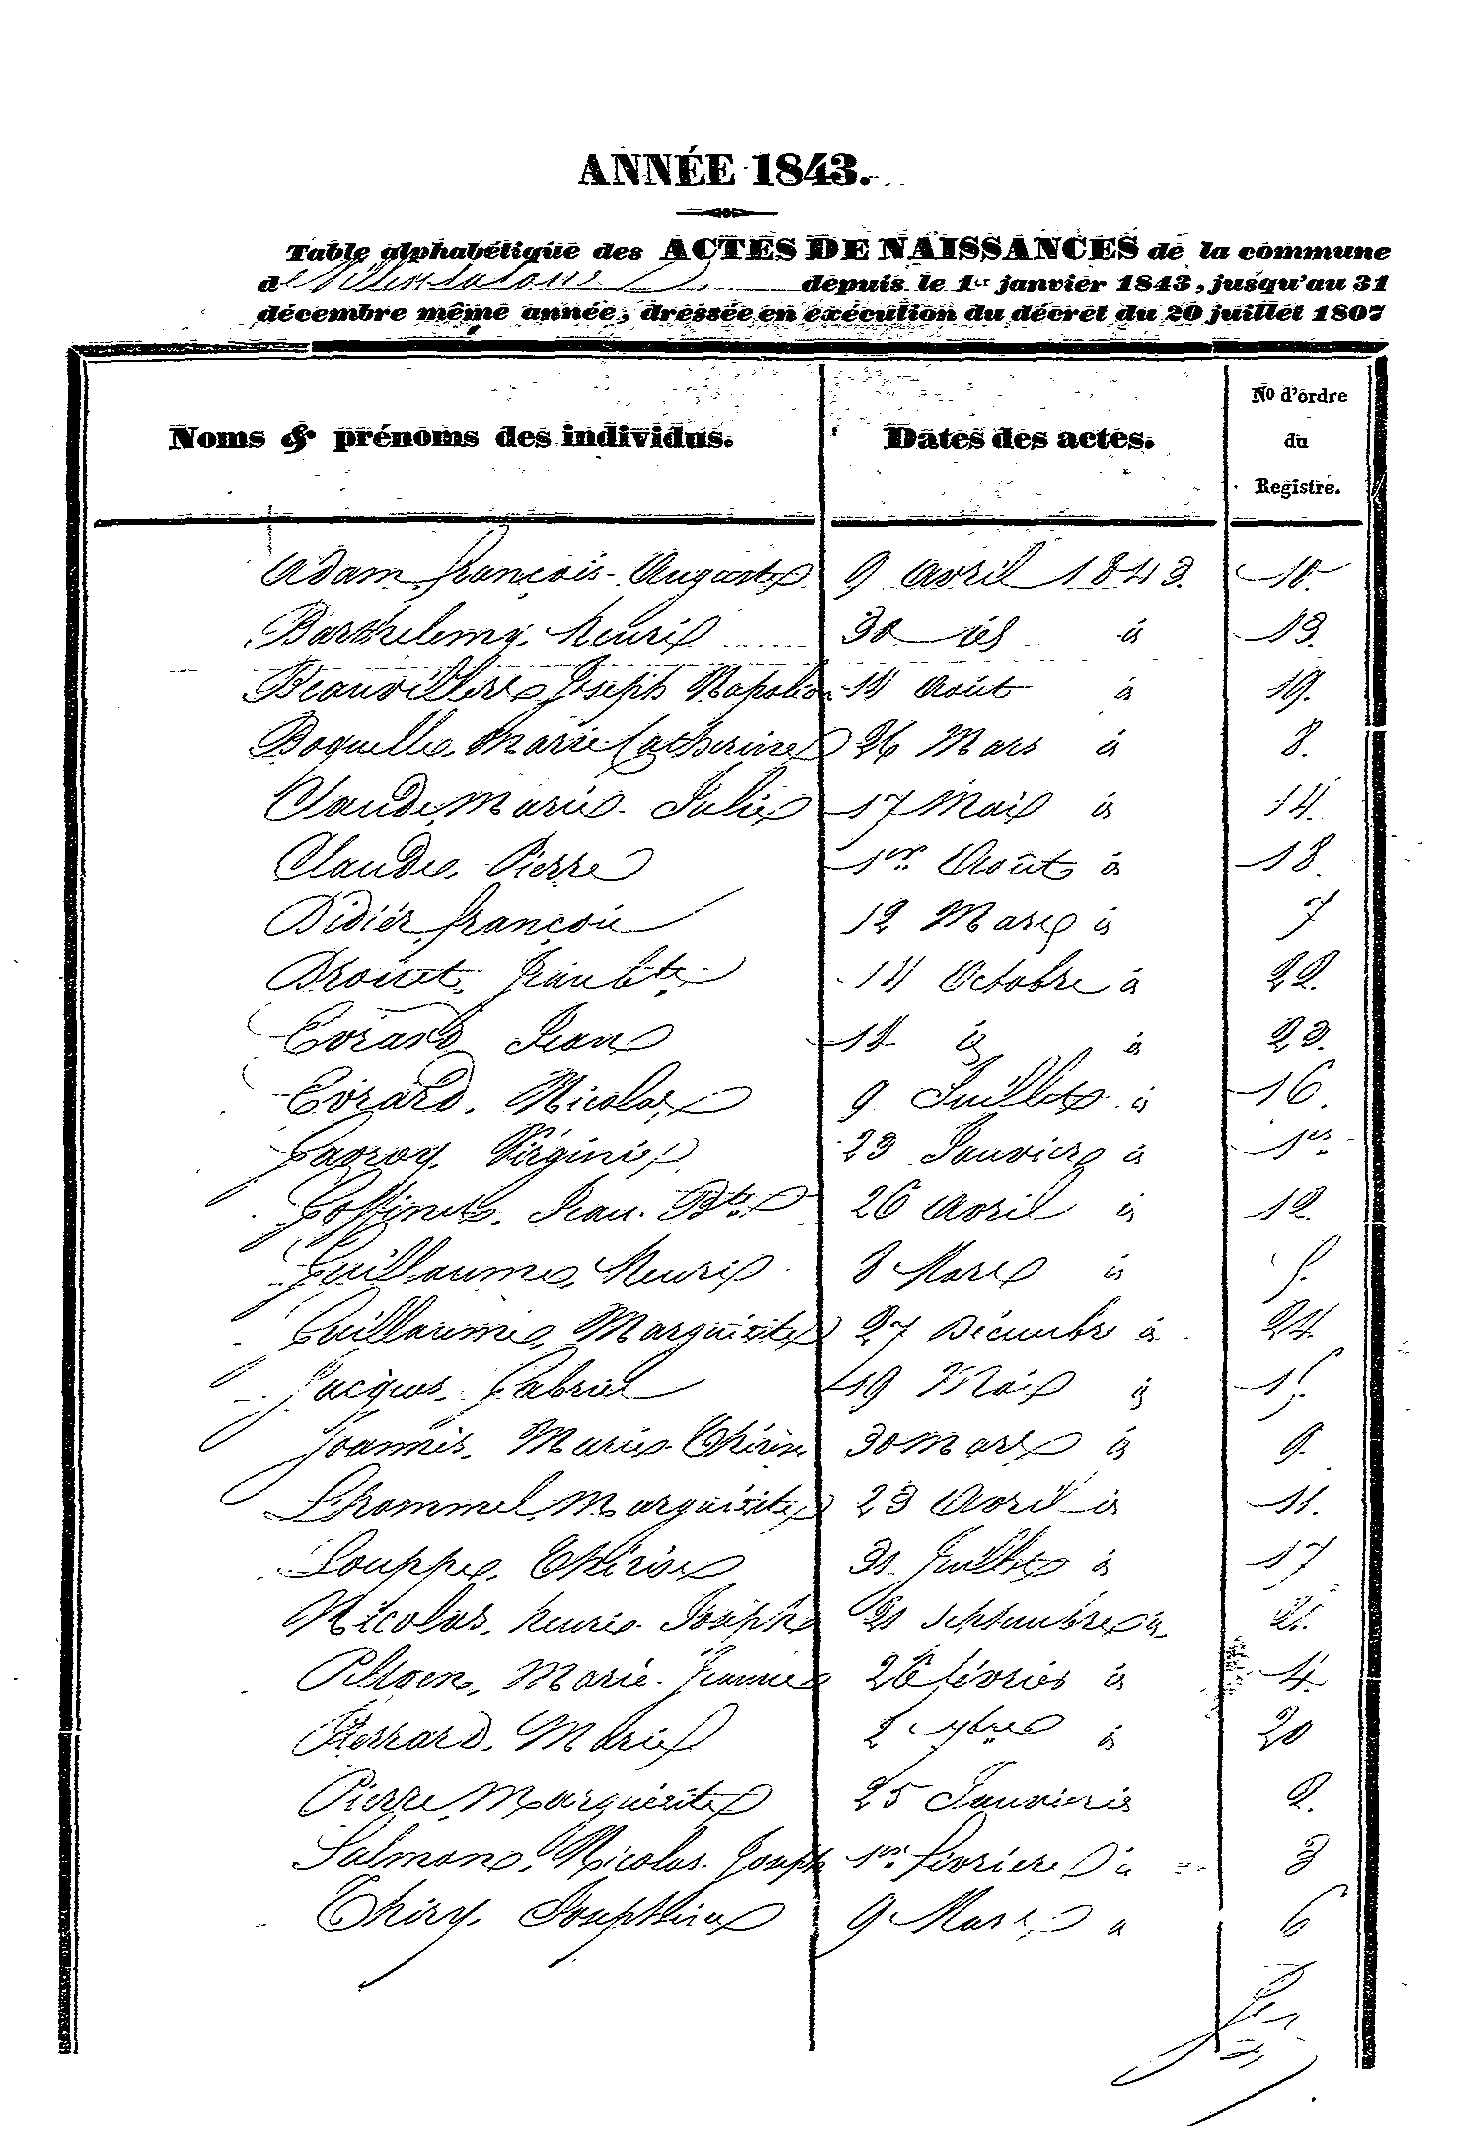 ANNÉE 1843.
Table alphabétique des ACTES DE NAISSANCES de la commune
de depuis le 1er janvier 1843, jusqu'au 31
décembre même année, dressée en exécution du décret du 20 juillet 1807
Noms & prénoms des individus. Dates des actes. No d'ordre du Registre.
Adam françois-Auguste 9 avril 1843. 10.
Barthelemy, henri 30 id id 13.
Beauvillers Joseph Napoléon 14 Août id 19.
Boquelle, Marie Catherine 26 Mars id 8.
Claude, Marie-Julie 17 Mai id 14.
Claude, Pierre 1er Août id 18.
Didier, françois 12 Mars id 7
Drouet, Jean bte 14 Octobre id 22.
Evrard, Jean 18 id id 23.
Evrard, Nicolas 9 Juillet id 16.
Virginie 23 Janvier id 1er
Goffinet, Jean-Bte 26 avril id 12.
Guillaume, Henri 8 Mars id 5.
Guillaume, Marguerite 27 Décembre id 24.
Jacques, Gabriel 19 Mai id 15.
Joannès, Marie-Thérèse 30 Mars id 9.
Lhommel, Marguerite 23 Avril id 11.
Louppe, Thérèse 31 Juillet id 17
Nicolas, henri-Joseph 21 septembre id 21.
Marie-Jeanne 26 février id 4.
Pierrard, Marie 2 7bre id 20
Pierre, Marguerite 25 Janvier id 2.
Salmon, Nicolas-Joseph 1er février id 3
Thiry, Joséphine 9 Mars id 6